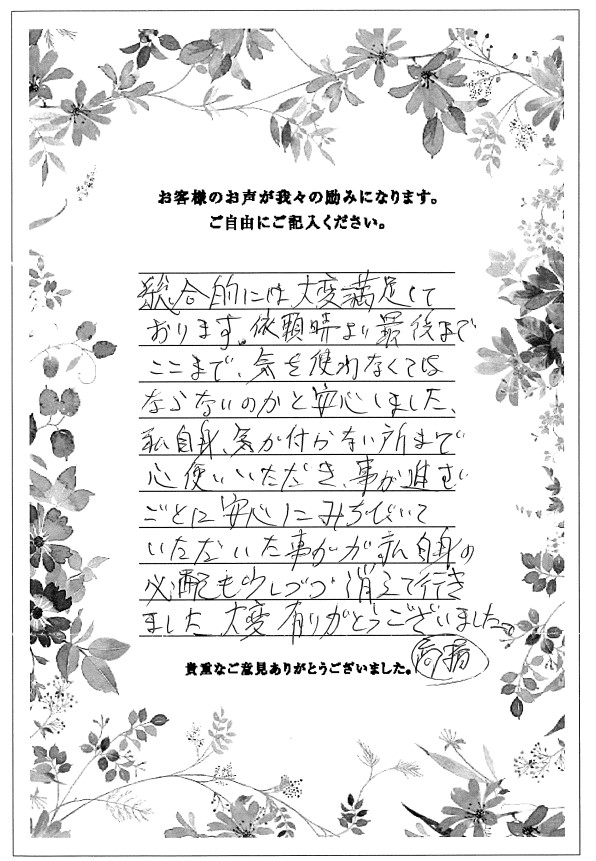 お客様のお声が我々の励みになります。
ご自由にご記入ください。
総合的には大変満足して
おります。依頼時より最後まで
ここまで、気を使わなくては
ならないのかと安心しました、
私自身、気が付かない所まで
心使いいただき、事が進む
ごとに安心にみちびいて
いただいた事が 自身の
心配も少しづつ消えて行き
ました 大変有りがとうございました。
貴重なご意見ありがとうございました。